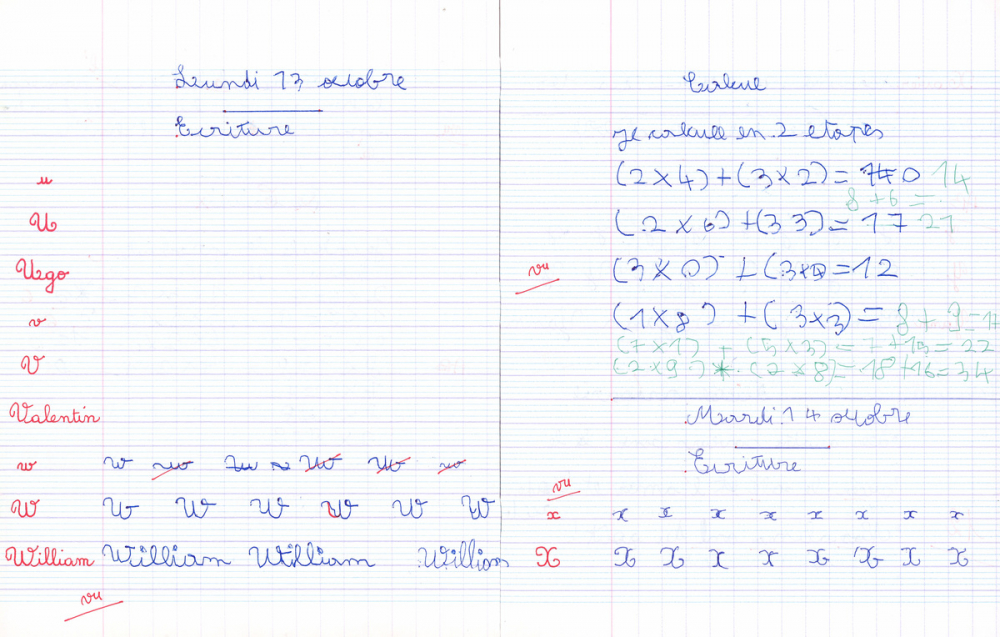 Lundi 13 octobre
Ecriture
u
U
Ugo
v
V
Valentin
w w w w w w w
W W W W W W W
William William William William
vu
Calcul
je calcule en 2 etapes
(2×4)+(3×2)= 14
8+6=
(2×6)+(3 3)=17 21
vu (3×0)+(3×0=12
(1×8)+(3×3)= 8+9=1
(7×1)+(5×3)=7+15=22
(2×9)*(2×8)=18+16=34
Mardi 14 octobre
Ecriture
vu
x x x x x x x x x
X X X X X X X X X